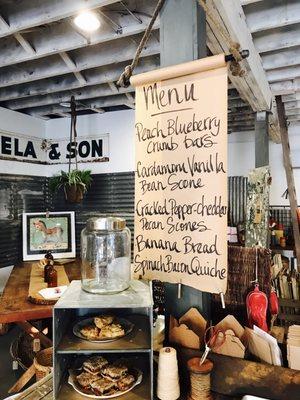 ELA & SON
Menu
Peach Blueberry
Crumb Bars
Cardamom Vanilla
Bean Scone
Cracked Pepper-cheddar
Pecan Scones
Banana Bread
Spinach Bacon Quiche